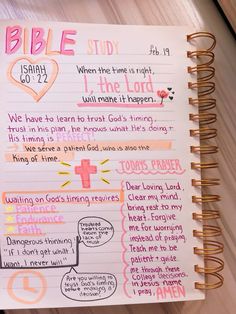 BIBLE STUDY
feb. 19
ISAIAH
60:22
When the time is right,
I, the Lord
will make it happen.
We have to learn to trust God's timing,
trust in his plan, he knows what He's doing.
His timing is PERFECT!
→ We serve a patient God who is also the
King of time.
TODAYS PRAYER
Waiting on God's timing requires
* Patience
* Endurance
* Faith
Dangerous thinking:
"If I don't get what I
want, I never will"
hearts come
from the lack
of trust
Are you willing to
trust God's timing
before making a
decision?
Dear Loving Lord,
Clear my mind,
bring rest to my
heart. Forgive
me for worrying
instead of praying
teach me to be
patient & guide
me through these
College decisions.
In Jesus name
I pray, AMEN